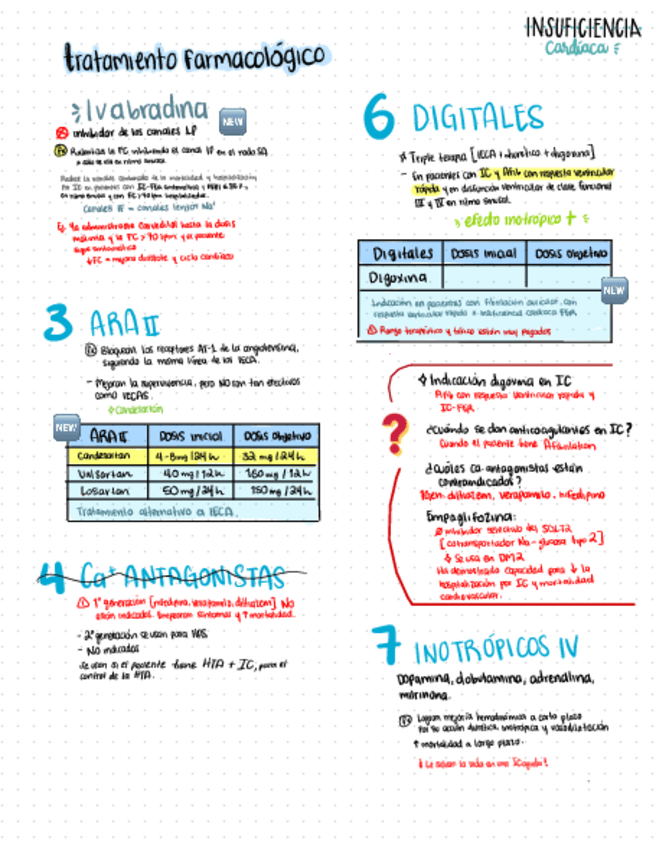 INSUFICIENCIA
Cardíaca
tratamiento farmacológico
Ivabradina
NEW
inhibidor de los canales IF
Ralentiza la FC inhibiendo el canal IF en el nodo SA
Canales IF = canales lentos Na+
máxima y la FC > 70 lpm y el paciente
sigue sintomático
↓FC = mejora diástole y ciclo cardíaco
3 ARA II
Bloquean los receptores AT-1 de la angiotensina,
siguiendo la misma línea de los IECA.
- Mejoran la supervivencia, pero NO son tan efectivos
como IECAS.
Candesartán
NEW
ARA II Dosis inicial Dosis objetivo
Candesartan 4-8mg/24h 32 mg/24h
Valsartan 40mg/12h 160mg/12h
Losartan 50mg/24h 150mg/24h
Tratamiento alternativo a IECA.
4 Ca+ ANTAGONISTAS
1ª generación [nifedipina, verapamilo, diltiazem] NO
están indicados. Empeoran síntomas y ↑ mortalidad.
- 2ª generación se usan para
- No indicados
Se usan si el paciente tiene HTA + IC, para el
control de la HTA.
6 DIGITALES
Triple terapia [IECA + diurético + digoxina]
- En pacientes con IC y Afib con respuesta ventricular
rápida y en disfunción ventricular de clase funcional
III y IV en ritmo sinusal.
efecto inotrópico +
Digitales Dosis inicial Dosis objetivo
Digoxina
NEW
Indicación en pacientes con fibrilación auricular con
respuesta ventricular rápida + insuficiencia cardíaca FER
Rango terapéutico y tóxico están muy pegados
?
Indicación digoxina en IC
Afib con respuesta ventricular rápida y
IC-FER
¿Cuándo se dan anticoagulantes en IC?
Cuando el paciente tiene
¿Cuáles ca-antagonistas están
contraindicados?
diltiazem, verapamilo, nifedipino
Empaglifozina:
inhibidor selectivo del SGLT2
[cotransportador Na-glucosa tipo 2]
Se usa en DM2
Ha demostrado capacidad para ↓ la
hospitalización por IC y mortalidad
cardiovascular.
7 INOTRÓPICOS IV
Dopamina, dobutamina, adrenalina,
milrinona.
Logran mejoría hemodinámica a corto plazo
por su acción diurética, inotrópica y vasodilatación
↑ mortalidad a largo plazo.
Le salvan la vida en una IC aguda!